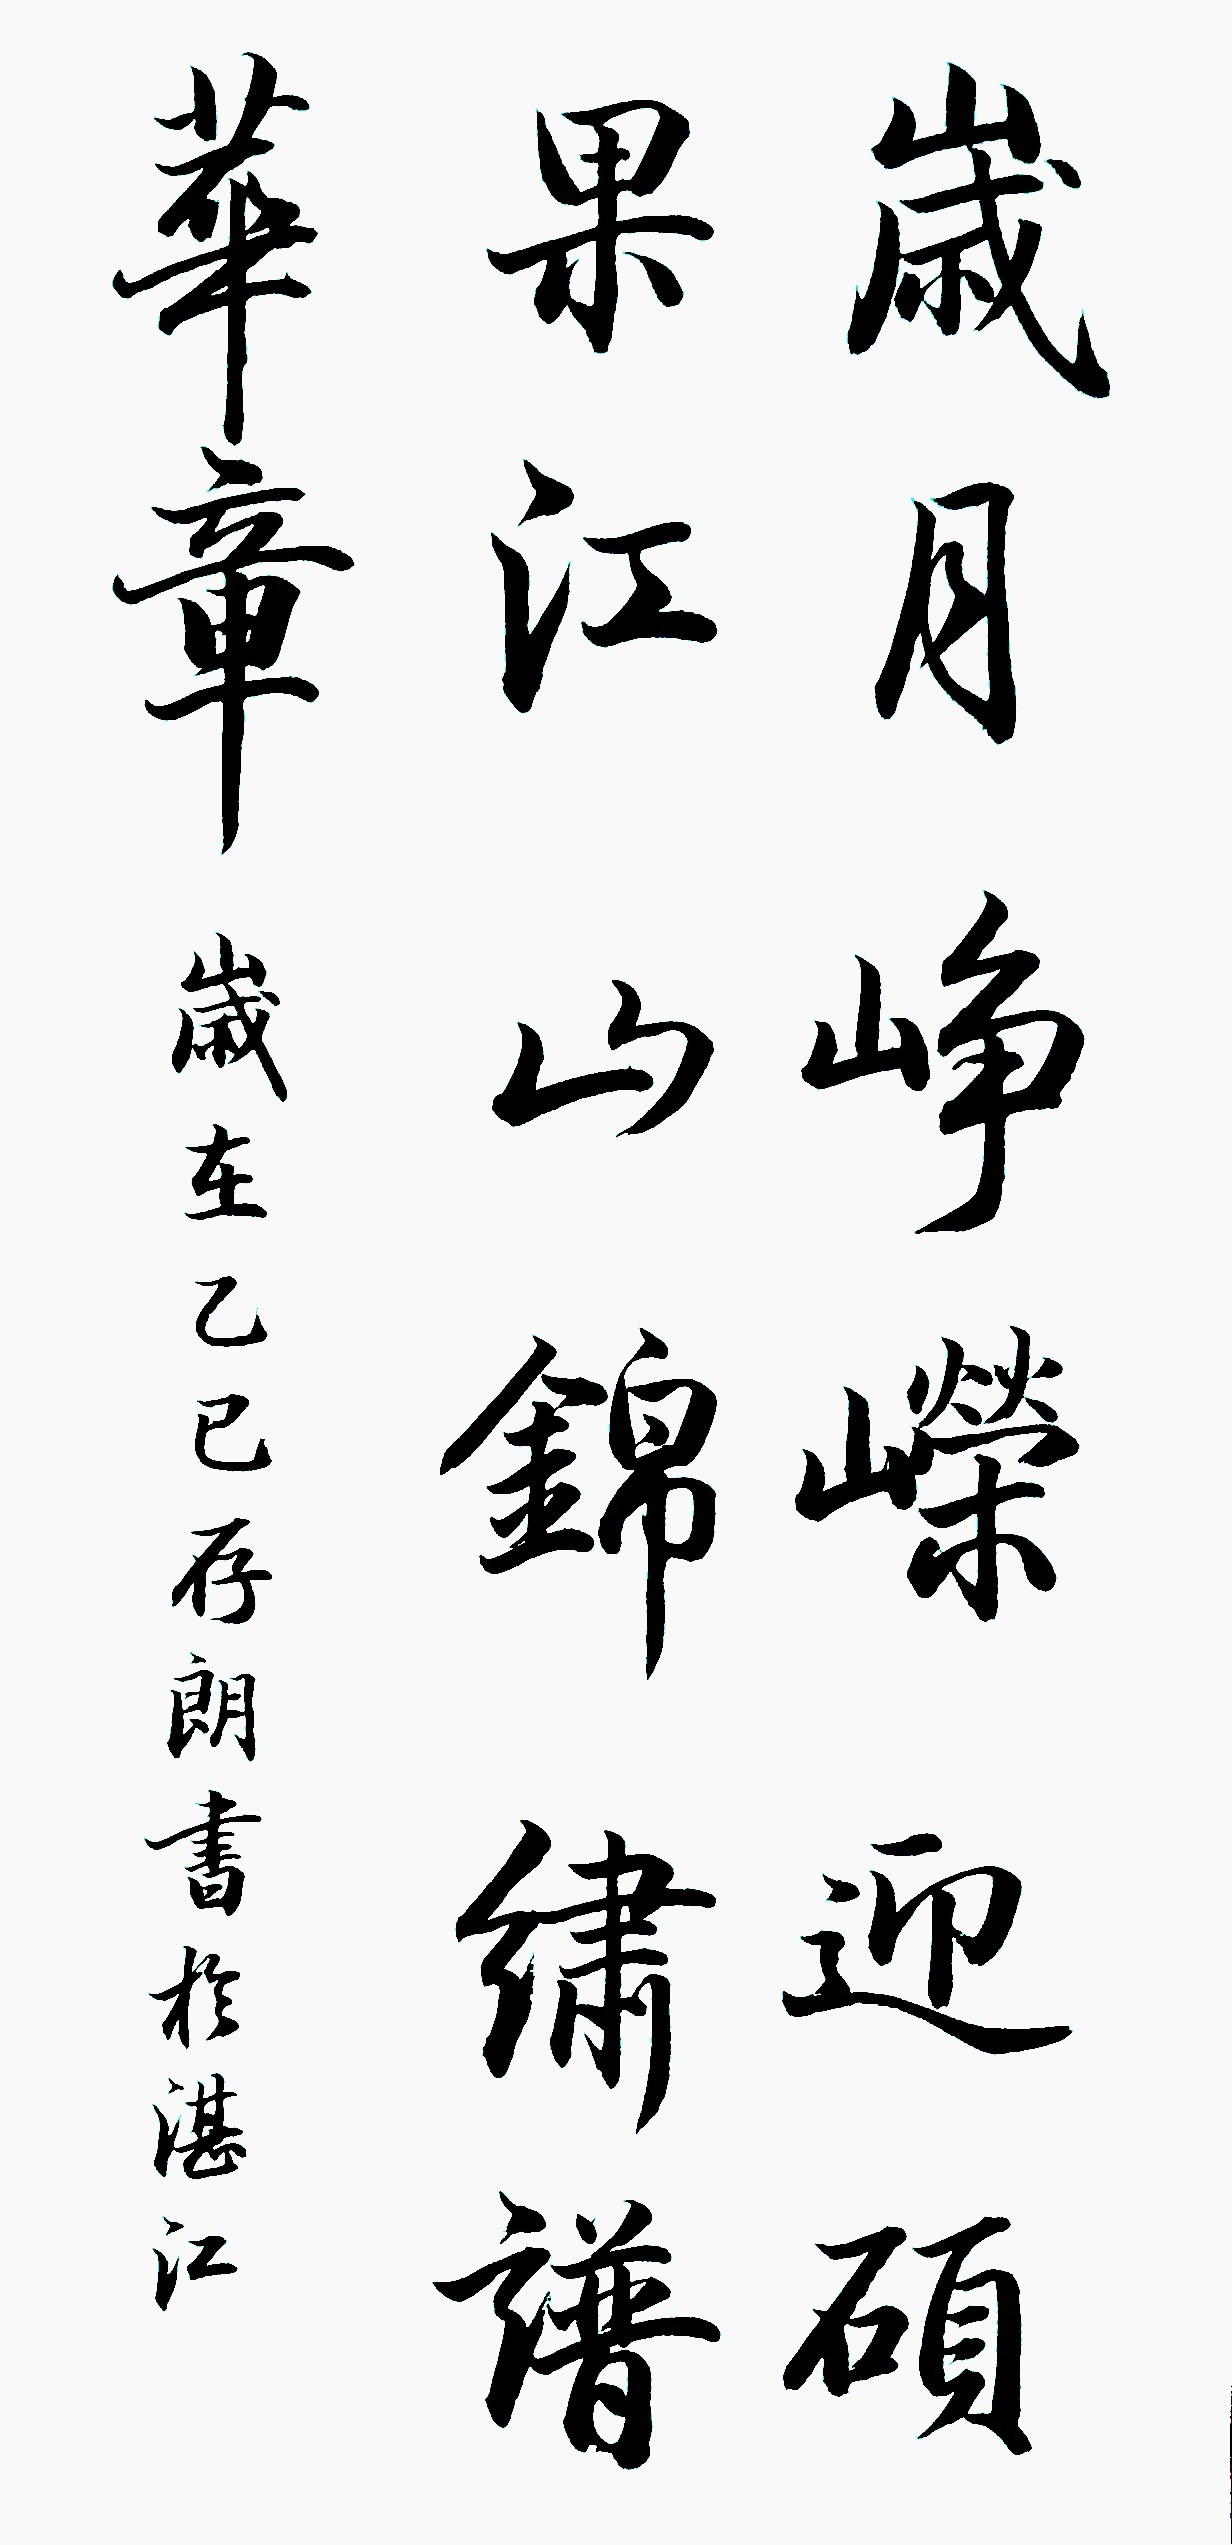 歲月崢嶸迎碩
果江山錦繡譜
華章
歲在乙巳存朗書於湛江